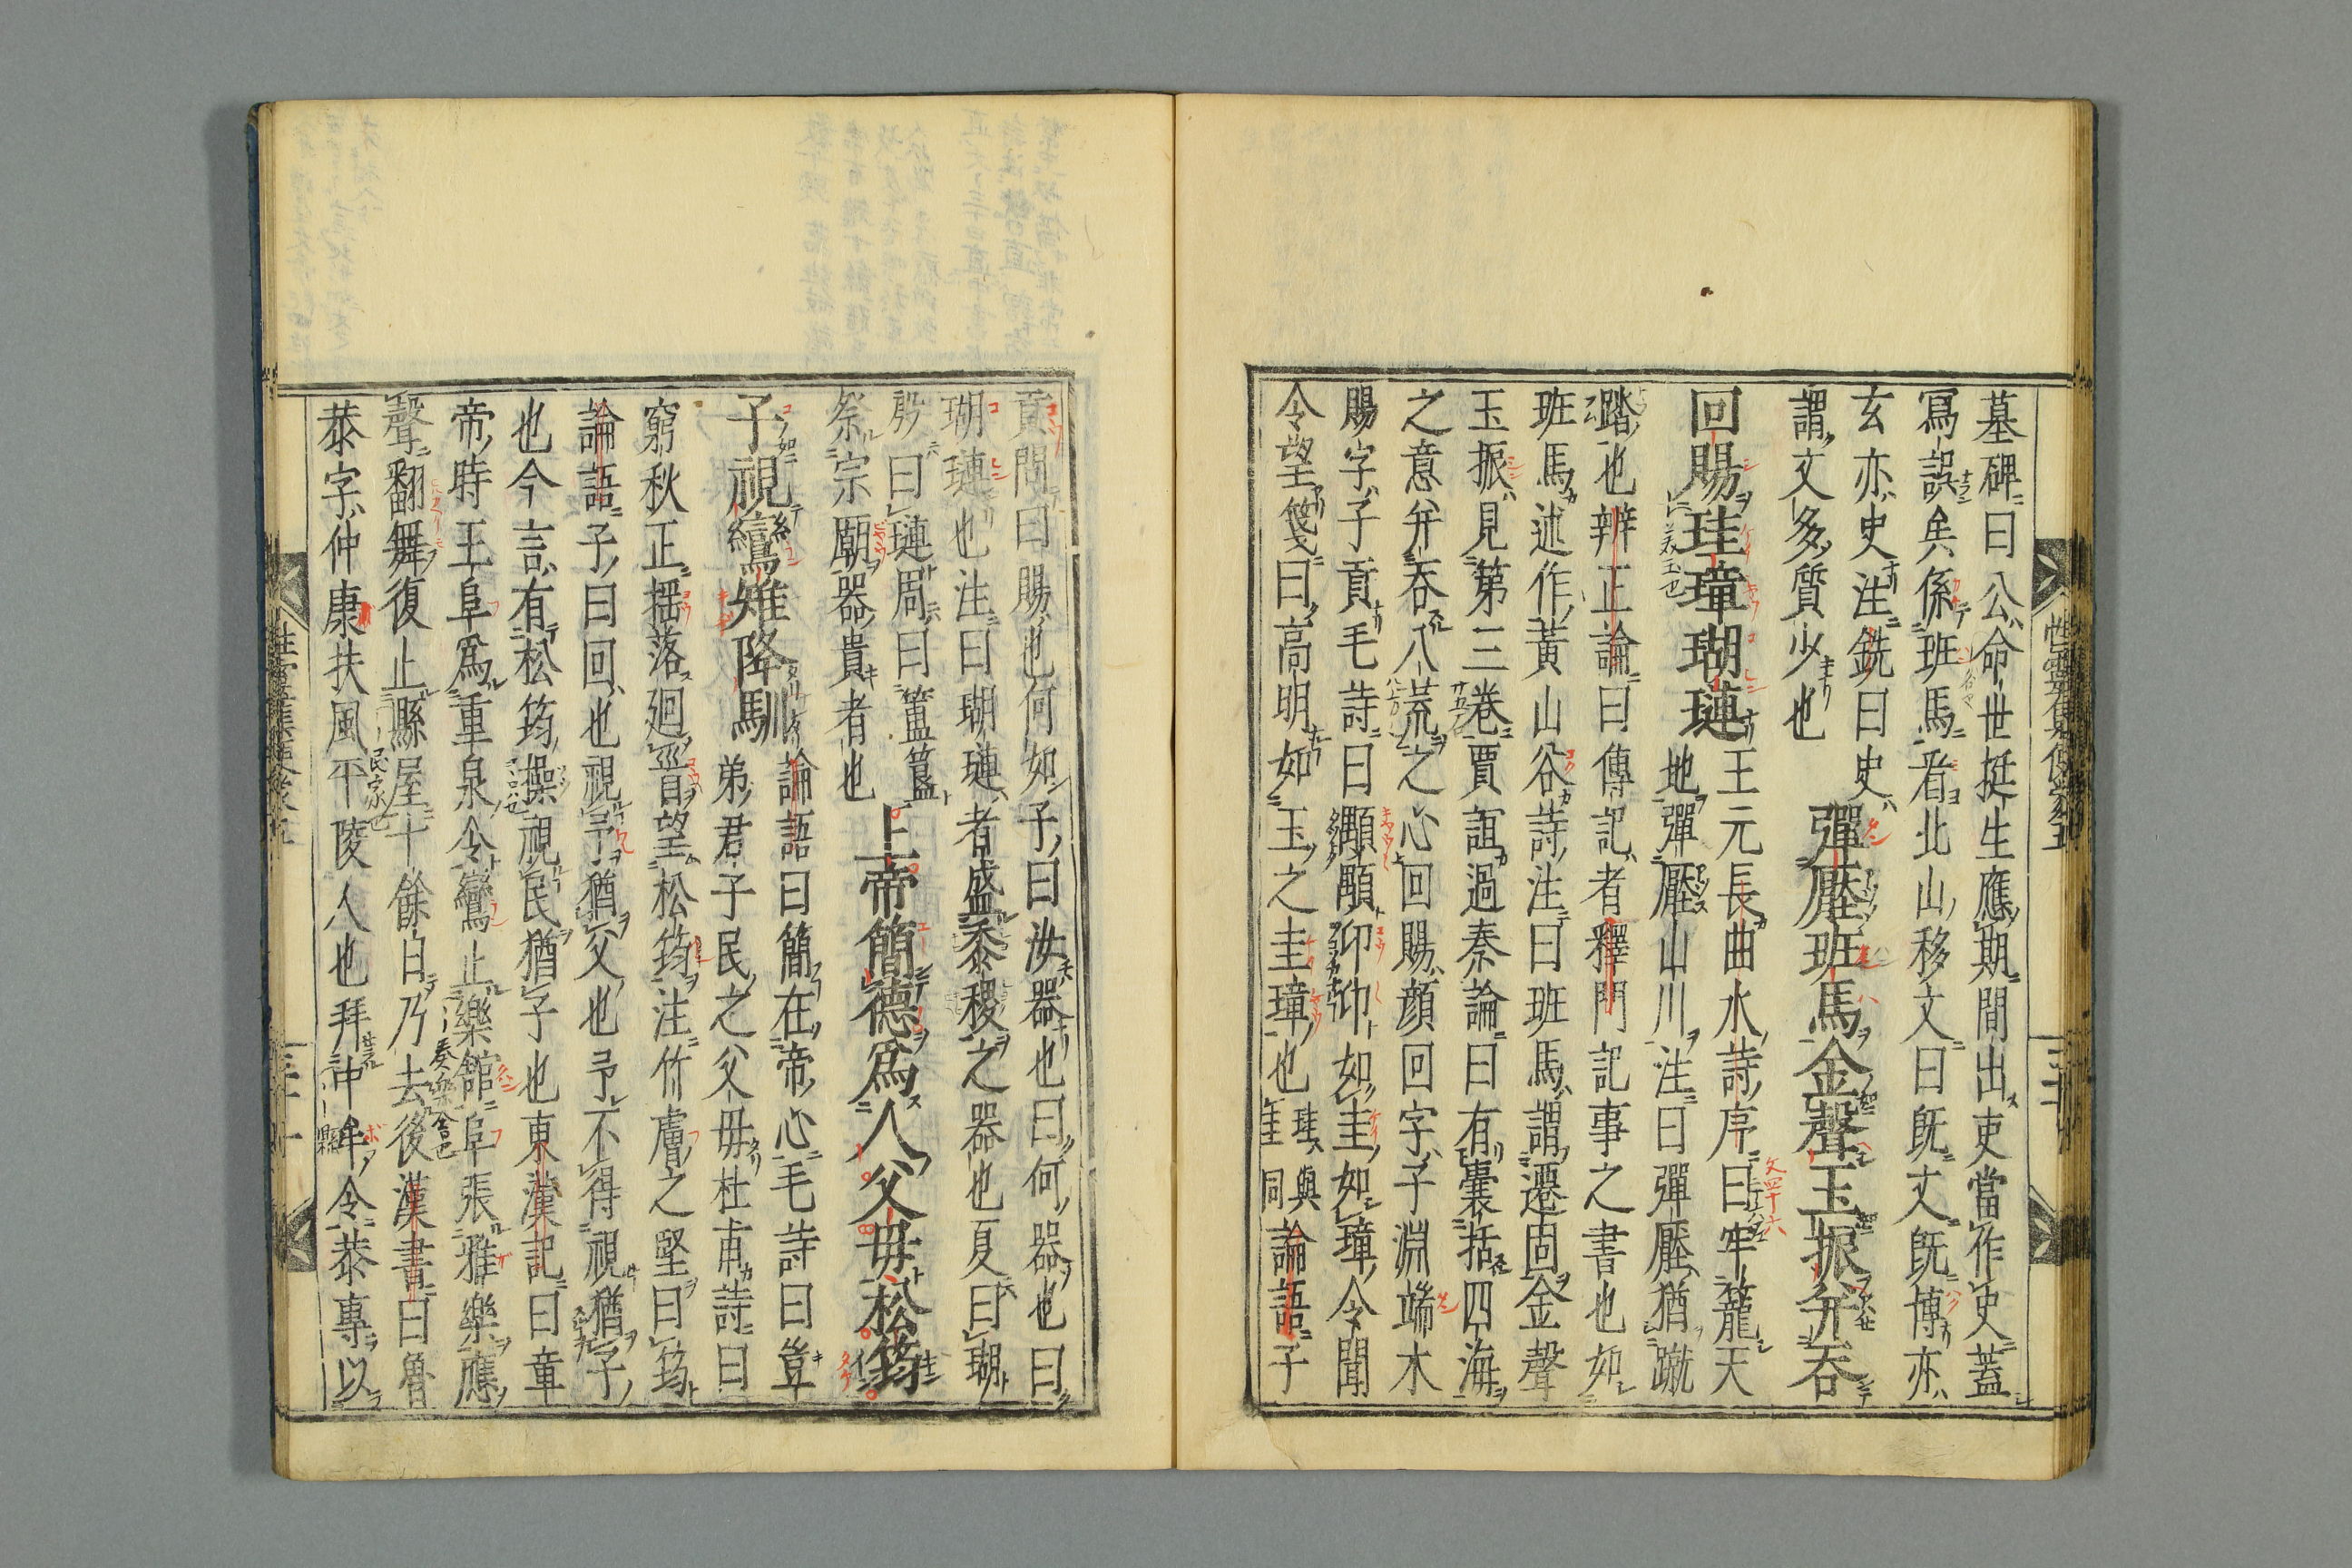 墓碑曰公命世挺生應期間出吏當作史蓋
寫誤矣係班馬者北山移文曰既文既博亦
玄亦史注銑曰史
謂文多質少也 彈壓班馬金聲玉振弁吞
回賜珪璋瑚璉 王元長曲水詩序曰牢籠天
地彈壓山川注曰彈壓猶蹴
踏也辨正論曰傳記者釋門記事之書也如
班馬述作黃山谷詩注曰班馬謂遷固金聲
玉振見第三卷賈誼過秦論曰有囊括四海
之意弁吞八荒之心回賜顏回字子淵端木
賜字子貢毛詩曰顒顒卬卬如圭如璋令聞
令望箋曰高明如玉之圭璋也珪與圭同論語子
貢問曰賜也何如子曰汝器也曰何器也曰
瑚璉也注曰瑚璉者盛黍稷之器也夏曰瑚
殷曰璉周曰簠簋
祭宗廟器貴者也 上帝簡德爲人父母松筠
子視鸞雉降馴 論語曰簡在帝心毛詩曰豈
弟君子民之父母杜甫詩曰
窮秋正揺落廻首望松筠注竹膚之堅曰筠
論語子曰回也視予猶父也予不得視猶子
也今言有松筠操視民猶子也東漢記曰童
帝時王阜爲重泉令鸞止樂舘阜張雅樂應
聲翻舞復止縣屋十餘日乃去後漢書曰魯
恭字仲康扶風平陵人也拜中牟令恭專以